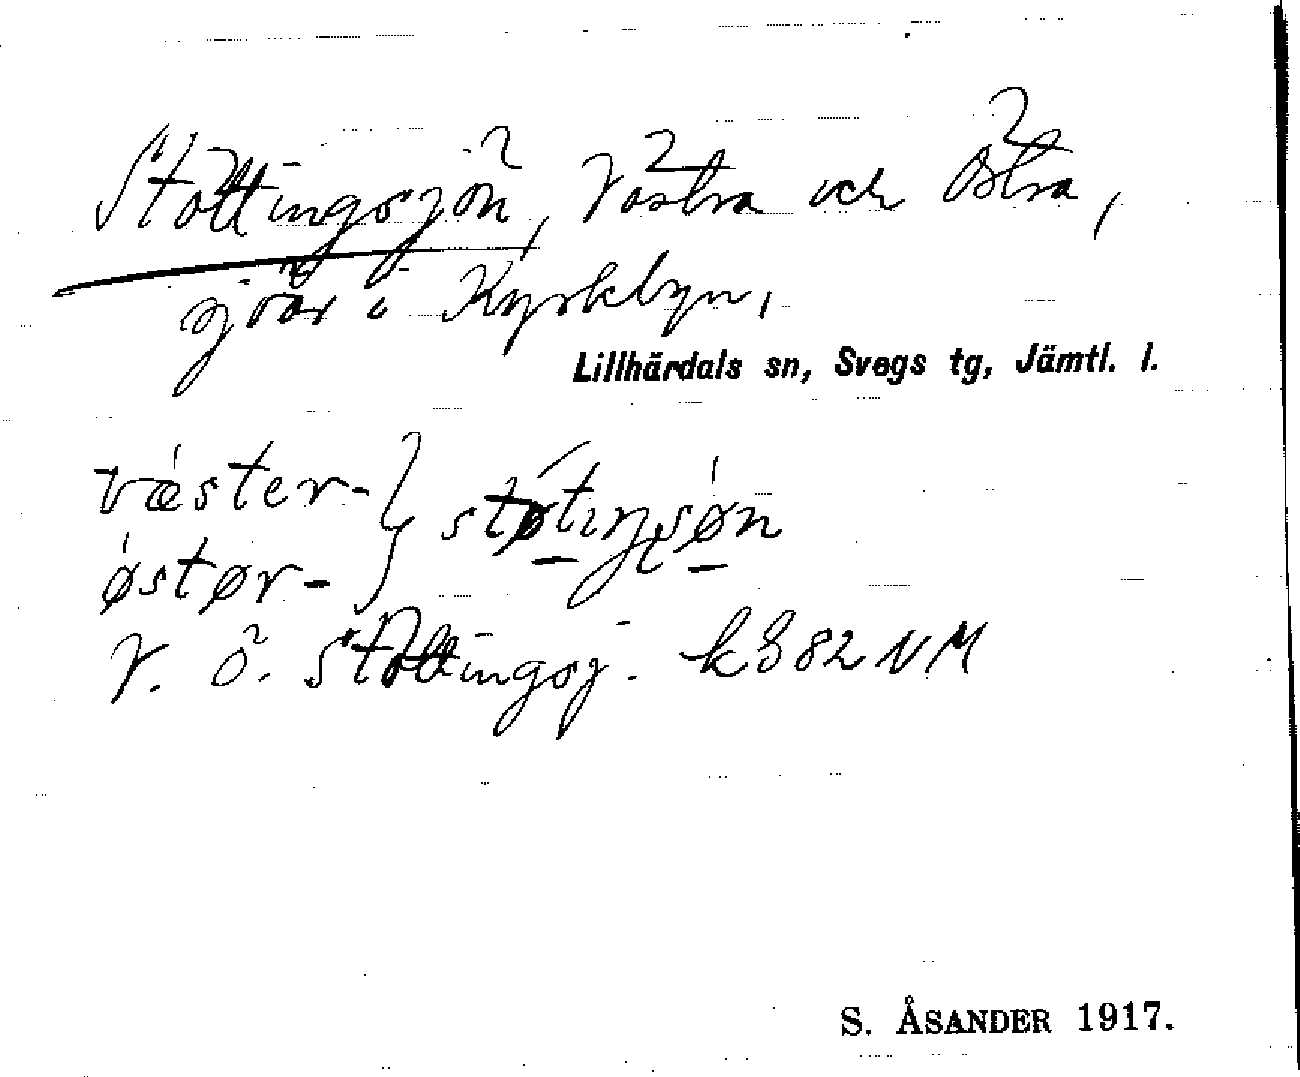 Stöttingssjön, Västra och Östra,
sjöar i Kyrkbyn,
Lillhärdals sn, Svegs tg, Jämtl. l.
væster-
østør- } støtiŋsøn
V. Ö. Stöttingsj. k 882 NM
S. ÅSANDER 1917.